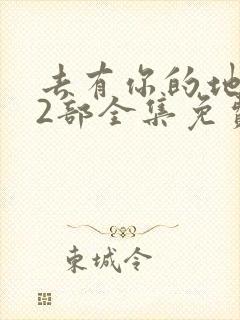 去有你的地
2部全集免费
东城令